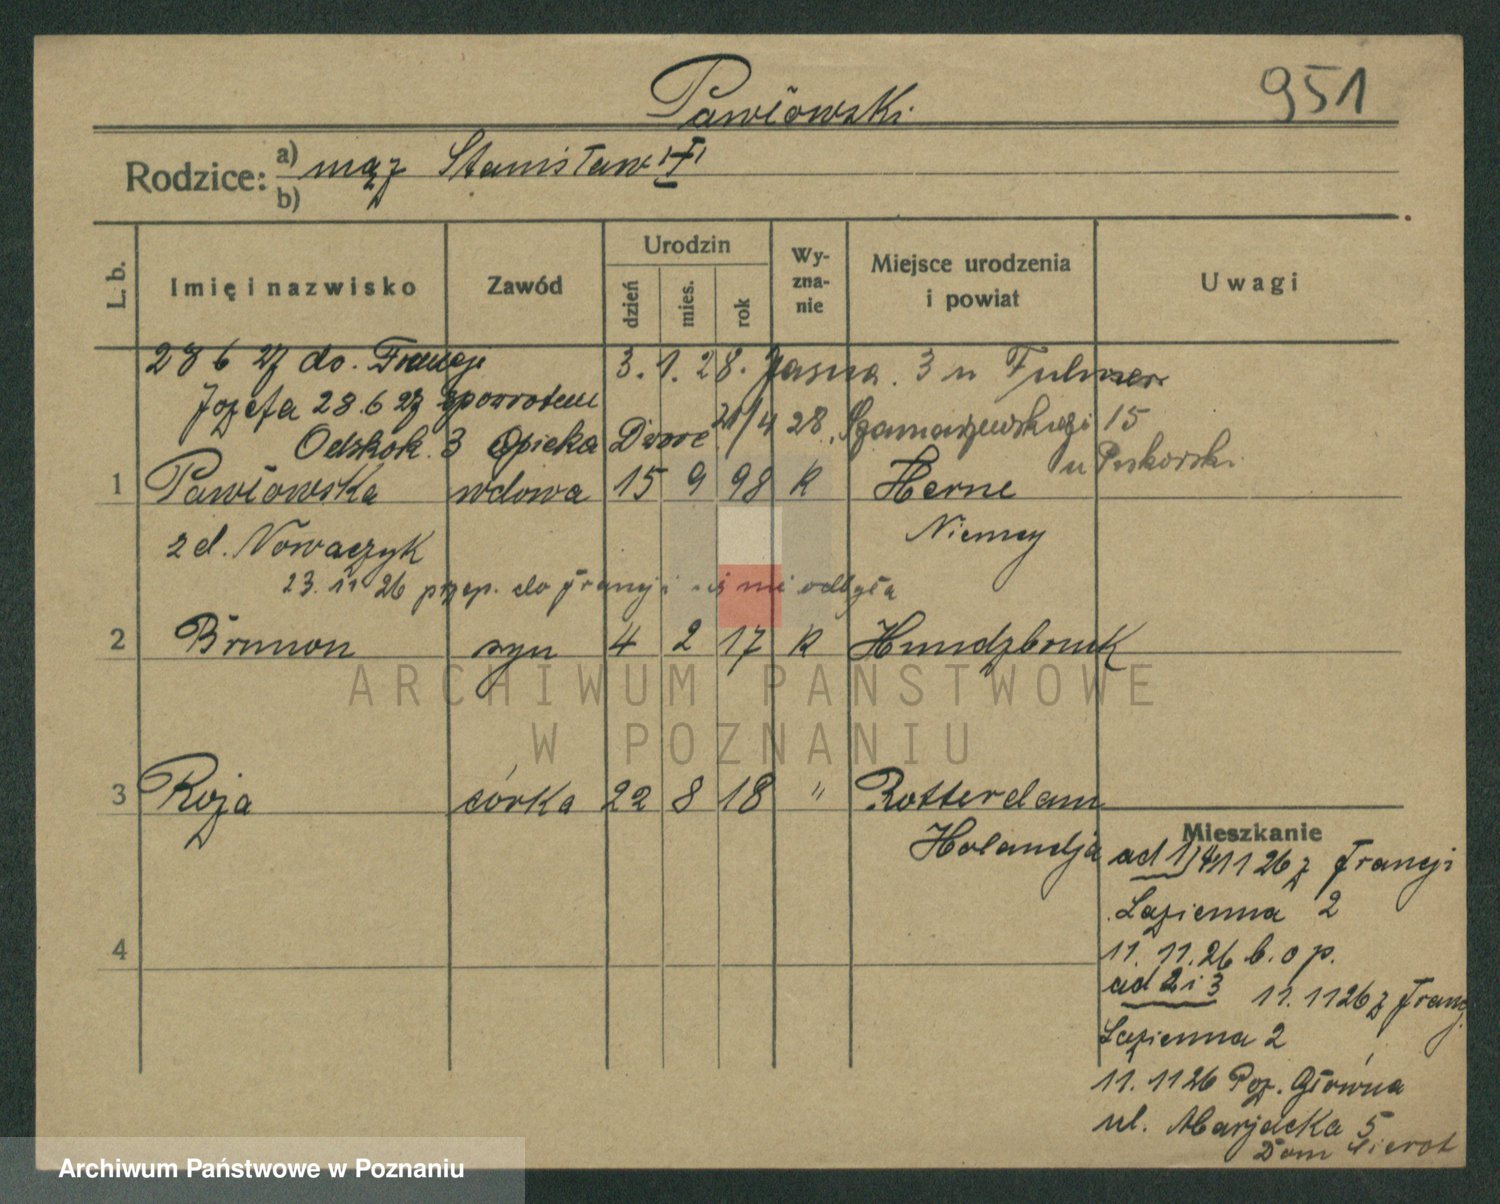 951
Pawłowski
Rodzice: a) mąż Stanisław
b)
L. b. Imię i nazwisko Zawód Urodzin dzień mies. rok Wyznanie Miejsce urodzenia i powiat Uwagi
28 6 27 do. Francji 3. 1. 28. Jasna. 3 u
Józefa 28. 6 27 zpowrotem 21/4 28 15
3 Opieka Dwore
u
1 Pawłowska wdowa 15 9 98 R Herne
zd. Nowaczyk Niemcy
23. 11 26 do Francji nie odbyła
2 Brunon syn 4 2 17 R Hundzbruck
ARCHIWUM PAŃSTWOWE
W POZNANIU
3 Roża córka 22 8 18 " Rotterdam
Holandja
4
Mieszkanie
ad 1) 4 11 26 z Francji
Łazienna 2
11. 11. 26 b. o p.
ad 2 i 3 11. 11 26 z Franc
Łazienna 2
11. 11 26 Poz. Główna
ul. Marjacka 5
Dom sierot
Archiwum Państwowe w Poznaniu